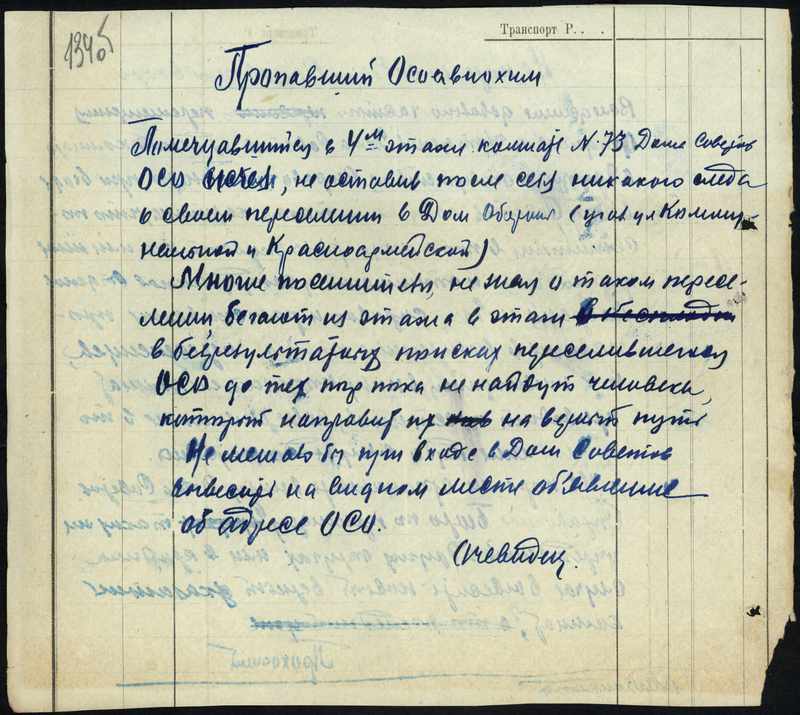 134об
Транспорт Р. . .
Пропавший Осоавиохим
Помещавшийся в 4м этаже комнате N. 73 Дома Советов
ОСО исчез, не оставив после себя никакого следа
о своем переселении в Дом Обороны (угол ул Комму-
нальной и Красноармейской)
Многие посетители, не зная о таком пересе-
лении, бегают из этажа в этаж в бесплодн
в безрезультатных поисках переселившегося
ОСО до тех пор пока не найдут человека,
который направит их на верный путь
Не мешало бы при входе в Дом Советов
вывесить на видном месте объявление
об адресе ОСО.
Очевидец.